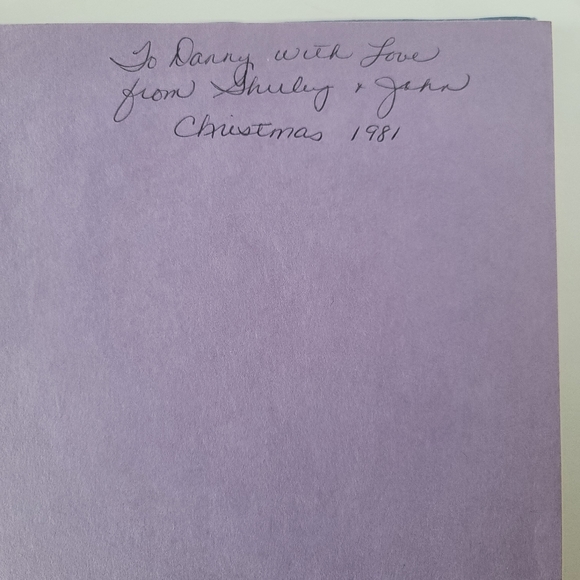 To Danny with Love
from Shirley & John
Christmas 1981